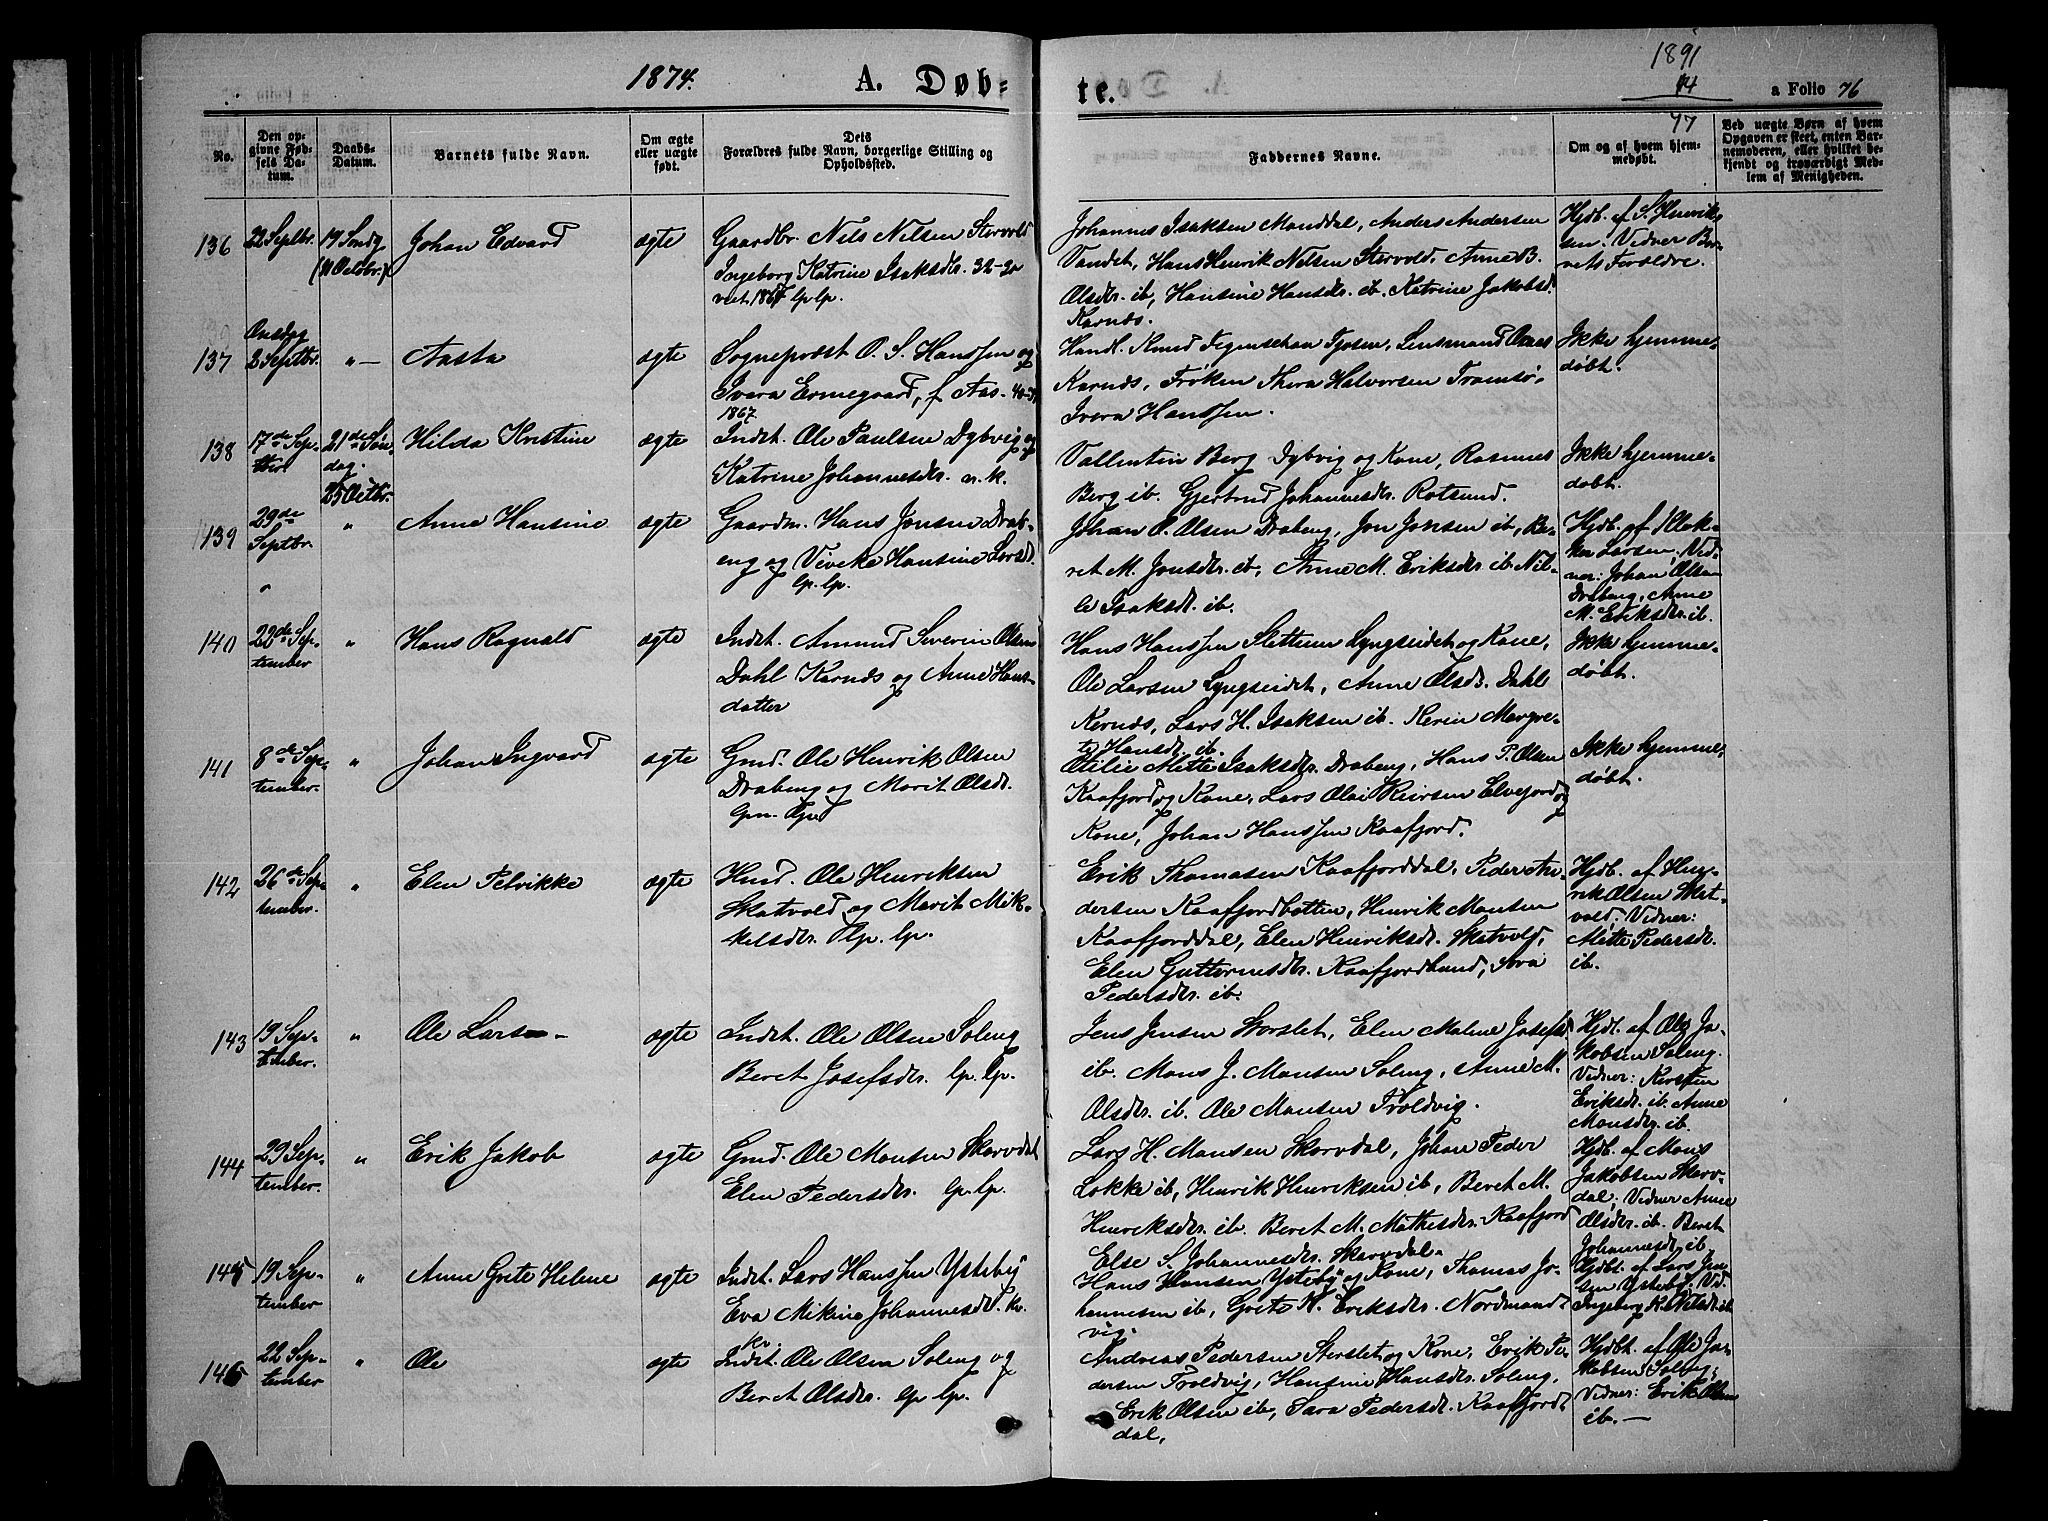 1874.
A. Døb=
te.
1891
14
77
a Folio 76
No.
Den op=
givne Fød=
sels Da=
tum.
Daabs=
Datum.
Barnets fulde Navn.
Om ægte
eller uægte
født.
Dets
Forældres fulde Navn, borgerlige Stilling og
Opholdssted.
Faddernes Navne.
Om og af hvem hjem=
medøbt.
Ved uægte Børn af hvem
Opgaven er skeet, enten Bar=
nemoderen, eller hvilket be=
kjendt og troværdigt Med=
lem af Menigheden.
136
22 Septbr.
19 Søndg
(11 Octbr.)
Johan Edvard
ægte
Gaardbr. Nils Nilsen Storvold
Ingeborg Katrine Isaksdr. 32-30
viet 1867 lp. lp.
Johannes Isaksen Manddal, Anders Andersen
Vandet, Hans Henrik Nilsen Storvold, Anne B.
Olsdr. ib, Hansine Hansdr. ib. Katrine Jakobsd.
Karnæs.
Hjdb. af S. Henrik-
sen. Vidner Bar-
nets Forældre.
137
Onsdag
2 Septbr.
" —
Aasta
ægte
Sogneprest O. S. Hanssen og
Ivara Ermegaard, f Aas.
1867
Handl. Knud Figenschau Gjøsen, Lensmand
Karnæs, Frøken Thora Halvorsen Tromsø,
Ivera Hanssen.
Ikke hjemme-
døbt.
138
17de Sep-
tbr.
21de Søn-
dag.
25 Octbr.
Hilda Kristine
ægte
Indst. Ole Paulsen Dybvig og
Katrine Johannesdr. n. k.
Vallentin Berg Dybvig og Kone, Rasmus
Berg ib. Gjertrud Johannesdr. Rotsund.
Ikke hjemme-
døbt.
139
29de
Septbr.
"
Anne Hansine
ægte
Gaardm. Hans Jonsen Drab-
eng og Viveke Hansine Larsdr.
lp. lp.
Johan O. Olsen Drabeng, Jon Jonsen ib, Be-
ret M. Jonsdr. ib, Anne M. Eriksdr. ib. Nil-
le Isaksdr. ib.
Hjdb. af
Larsen. Vid-
ner: Johan Olsen
Drabeng, Anne
M. Eriksdr. ib.
140
22de Sep-
tember
"
Hans Ragnald
ægte
Indst. Amund Severin Olsen
Dahl Karnæs og Anne Hans-
datter
Hans Hanssen Slettum Lyngseidet og Kone,
Ole Larsen Lyngseidet, Anne Olsdr. Dahl
Karnæs, Lars H. Isaksen ib. Karin Margre-
te Hansdr. ib.
Ikke hjemme-
døbt.
141
8de Sep-
tember.
"
Johan Ingvard
ægte
Gmd. Ole Henrik Olsen
Drabeng og Marit Olsdr.
Otilie Mette Isaksdr. Drabeng, Hans P. Olsen
Kaafjord og Kone, Lars Olai Elvejord og
Kone, Johan Hanssen Kaafjord.
Ikke hjemme-
døbt.
142
26de Sep-
tember.
"
Elen Petrikke
ægte
Hmd. Ole Henriksen
Skatvold og Marit Mik-
kelsdr. lp. lp.
Erik Thomasen Kaafjorddal, Peder An-
dersen Kaafjordbotten, Henrik Monsen
Kaafjorddal, Elen Henriksdr. Skatvold,
Elen Guttormsdr. Kaafjordbund, Sara
Pedersdr. ib.
Hjdb. af Hen-
rik Olsen Skat-
vold. Vidner:
Mette Pedersdr.
ib.
143
19 Sep-
tember.
"
Ole Larse-
ægte
Indst. Ole Olsen Soleng
Beret Josefsdr. lp. lp.
Jens Jensen Storslet, Elen Maline Josefsd.
ib. Mons J. Monsen Soleng, Anne M.
Olsdr. ib. Ole Monsen Troldvig.
Hjdb. af Ole Ja-
kobsen Soleng.
Vidner: Kirsten
Eriksdr. ib. Anne
Monsdr. ib.
144
29 Sep-
tember.
"
Erik Jakob
ægte
Gmd. Ole Monsen Skorvdal
Elen Pedersdr. lp. lp.
Lars H. Monsen Skorvdal, Johan Peder
Lokke ib, Henrik Henriksen ib, Beret M.
Henriksdr. ib. Beret M. Mathisdr. Kaafjord
Else S. Johannesdr. Skorvdal.
Hjdb. af Mons
Jakobsen Skorv-
dal. Vidner Anne
Olsdr. ib. Beret
Johannesdr. ib.
145
19 Sep-
tember
"
Anne Grete Helene
ægte
Indst. Lars Hanssen Ysteby
Eva Mikine Johannesdr. kv.
kv
Hans Hansen Ysteby og Kone, Thomas Jo-
hannesen ib, Grete K. Eriksdr. Nordmand-
vig.
Hjdbt. af Lars Jen-
sen Ysteby. Vid.
Ingeborg K. Nilsdr. ib
146
22 Sep-
tember
"
Ole
ægte
Indst. Ole Olsen Soleng og
Beret Olsdr. lp lp.
Andreas Pedersen Storslet og Kone, Erik Pe-
dersen Troldvig, Hansine Hansdr. Soleng,
Erik Olsen ib, Sara Pedersdr. Kaafjord-
dal,
Hjdbt. af Ole Ja-
kobsen Soleng.
Vidner: Erik Olsen
ib. —